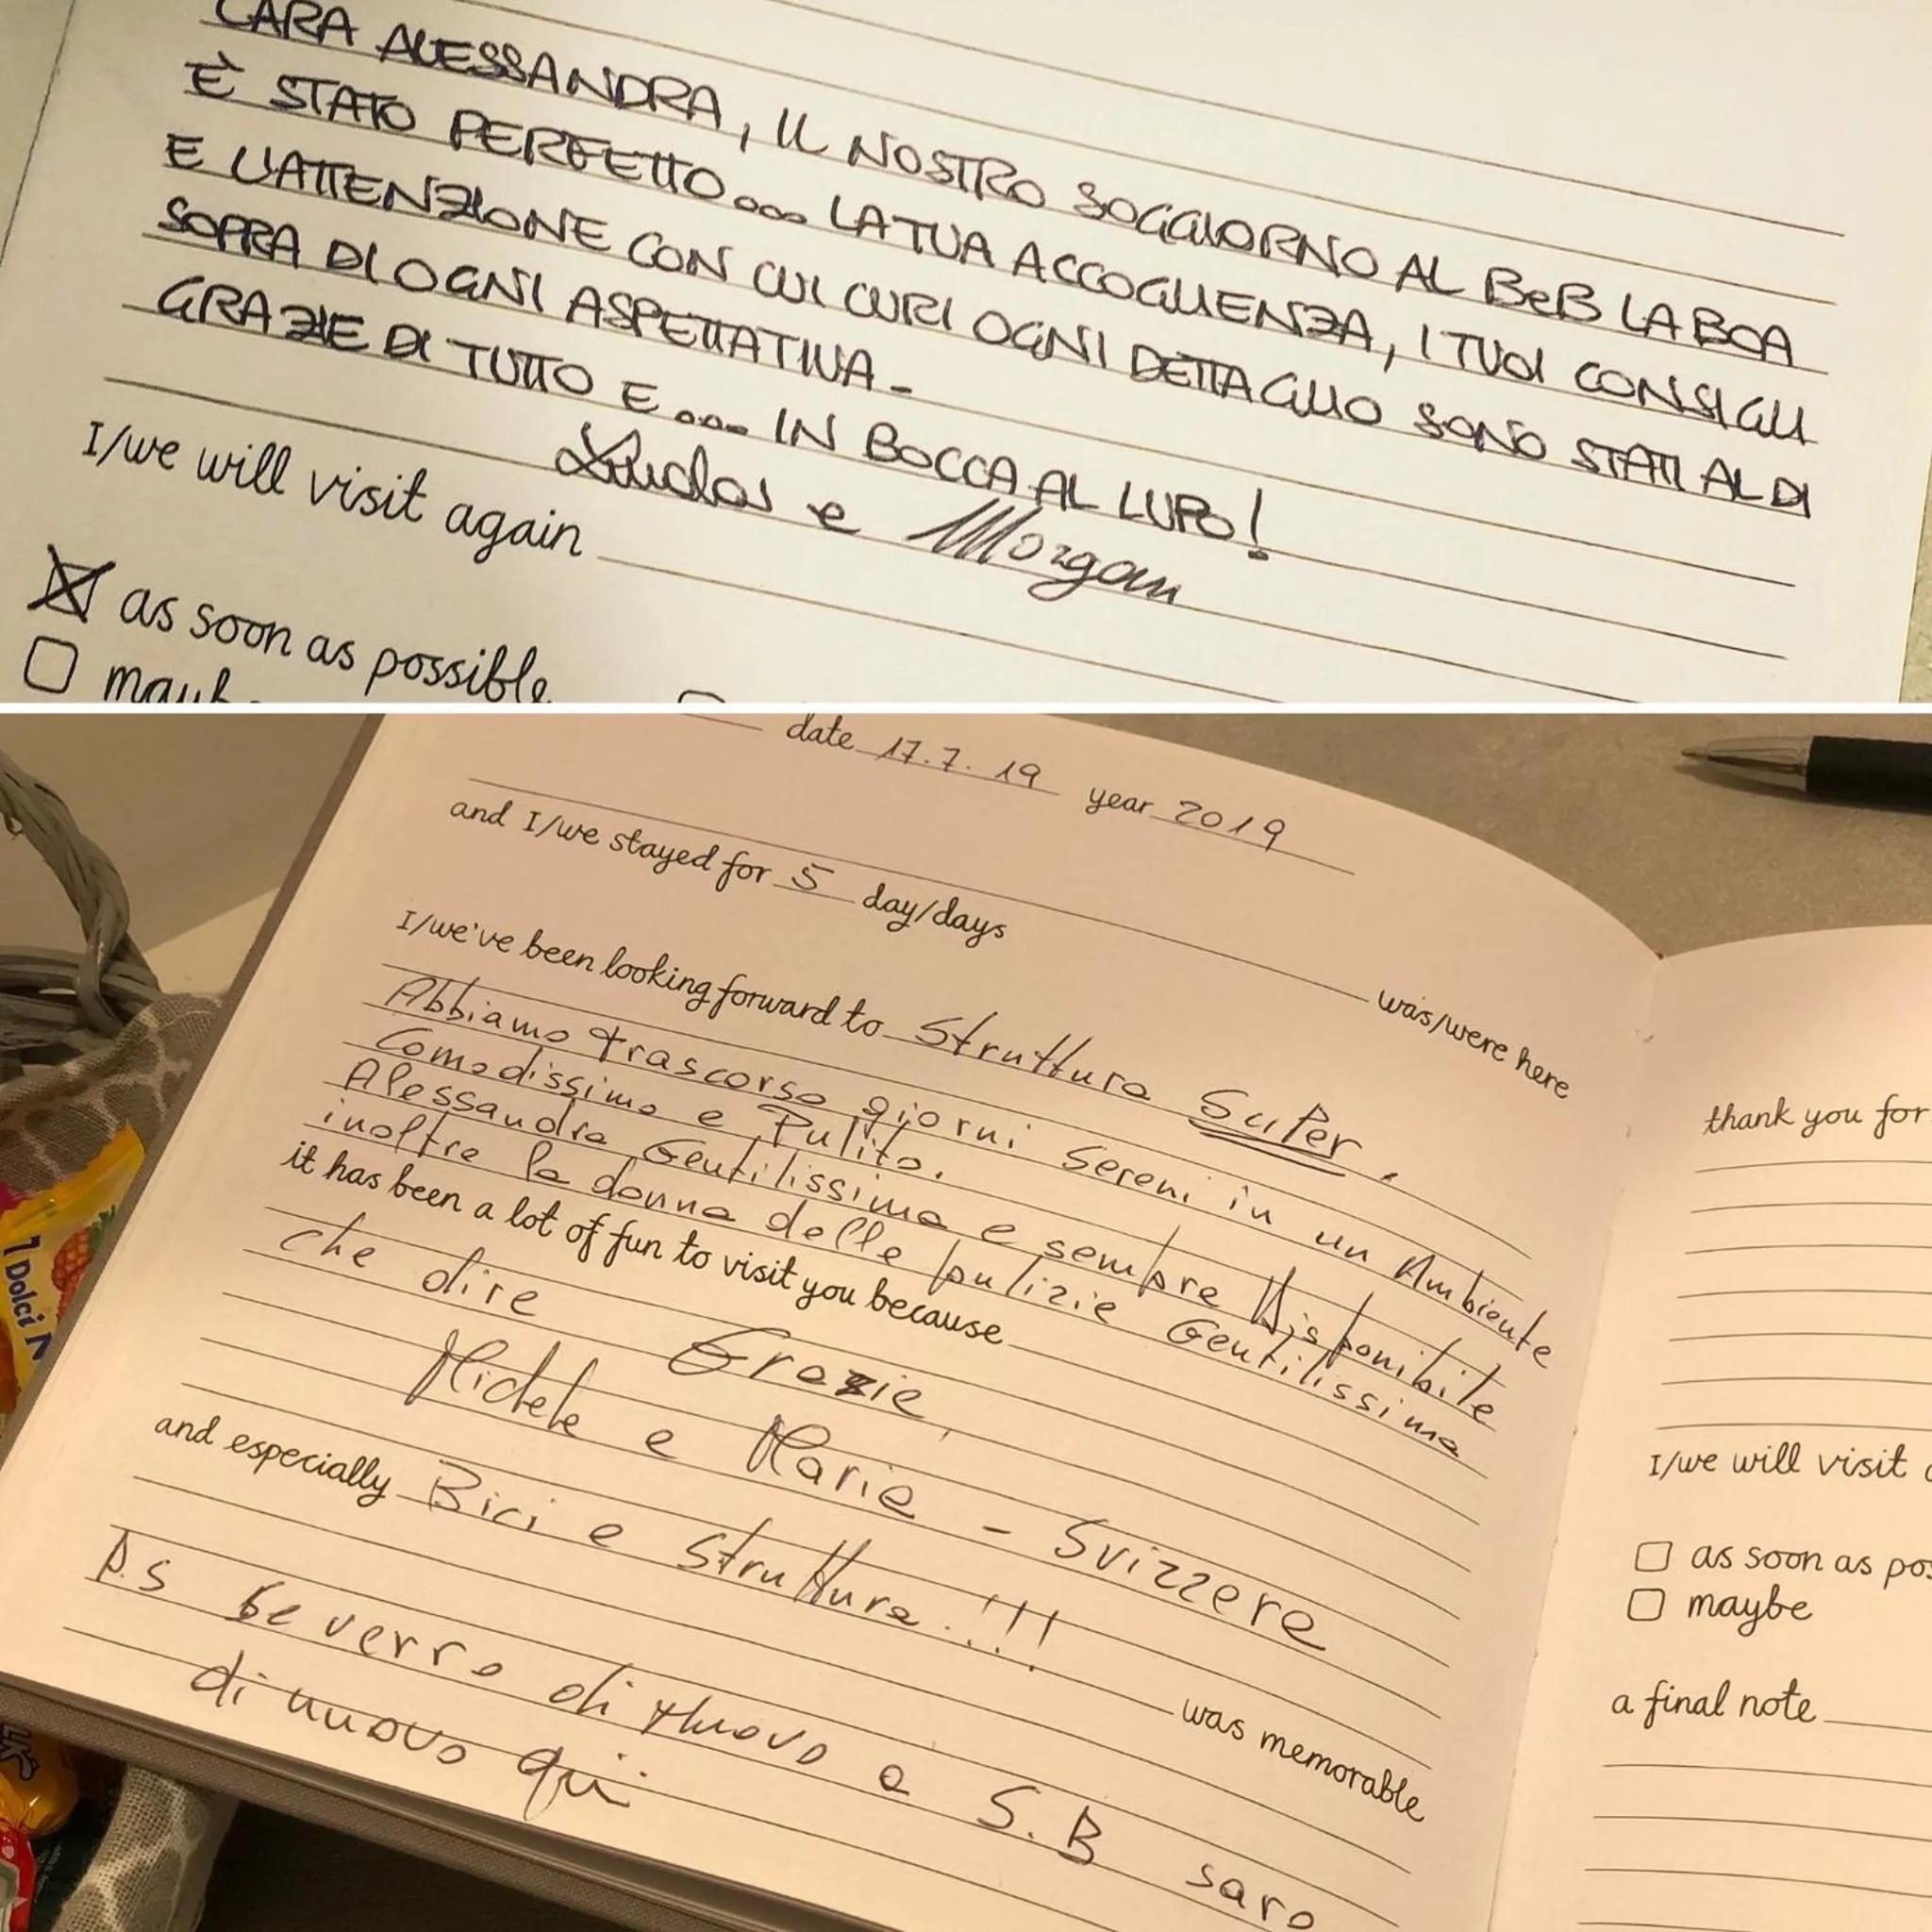 CARA ALESSANDRA, IL NOSTRO SOGGIORNO AL BeB LA BOA
È STATO PERFETTO... LA TUA ACCOGLIENZA, I TUOI CONSIGLI
E L'ATTENZIONE CON CUI CURI OGNI DETTAGLIO SONO STATI AL DI
SOPRA DI OGNI ASPETTATIVA-
GRAZIE DI TUTTO E... IN BOCCA AL LUPO!
e Morgan
I/we will visit again
as soon as possible
date 17.7.19 year 2019
was/were here
and I/we stayed for 5 day/days
I/we've been looking forward to Struttura Super.
Abbiamo trascorso giorni sereni in un Ambiente
Comodissimo e Pulito.
Alessandra Gentilissima e sempre Disponibile
inoltre la donna delle pulizie Gentilissima
it has been a lot of fun to visit you because
che dire Grazie
Michele e Maria - Svizzera
and especially Bici e struttura!!!
was memorable
P.S se verro di nuovo a S.B saro
di nuovo qui
thank you for
I/we will visit
as soon as pos
maybe
a final note
1 Dolci